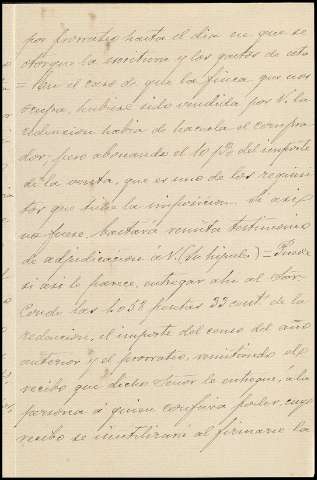 por prorrateo hasta el dia en que se
otorgue la escritura y los gastos de esta
= En el caso de que la finca que nos
ocupa, hubiese sido vendida por V. la
redencion habia de hacerla el compra-
dor, pero abonando el 10 p% del importe
de la venta, que es uno de los requisi-
tos que tiene la imposicion. Si asi
no fuese, bastará remita testimonio
de adjudicacion á V. (su hijuela) = Puede
si asi le parece, entregar ahi al Sor.
Conde las 1.058 pesetas 33 cents. de la
redencion, el importe del censo del año
anterior y el prorrateo, remitiendo el
recibo que dicho Señor le entregue, á la
persona á quien confiera poder, cuyo
recibo se inutilizará al firmarse la